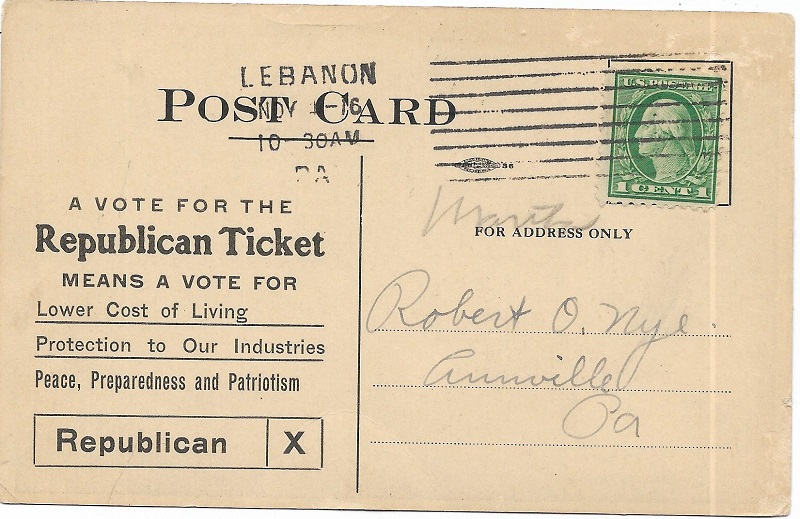 LEBANON
NOV -16
10 30AM
PA
POST CARD
U.S. POSTAGE
1 CENT 1
86
A VOTE FOR THE
Republican Ticket
MEANS A VOTE FOR
Lower Cost of Living
Protection to Our Industries
Peace, Preparedness and Patriotism
Republican X
FOR ADDRESS ONLY
Robert O. Nye.
Annville
Pa